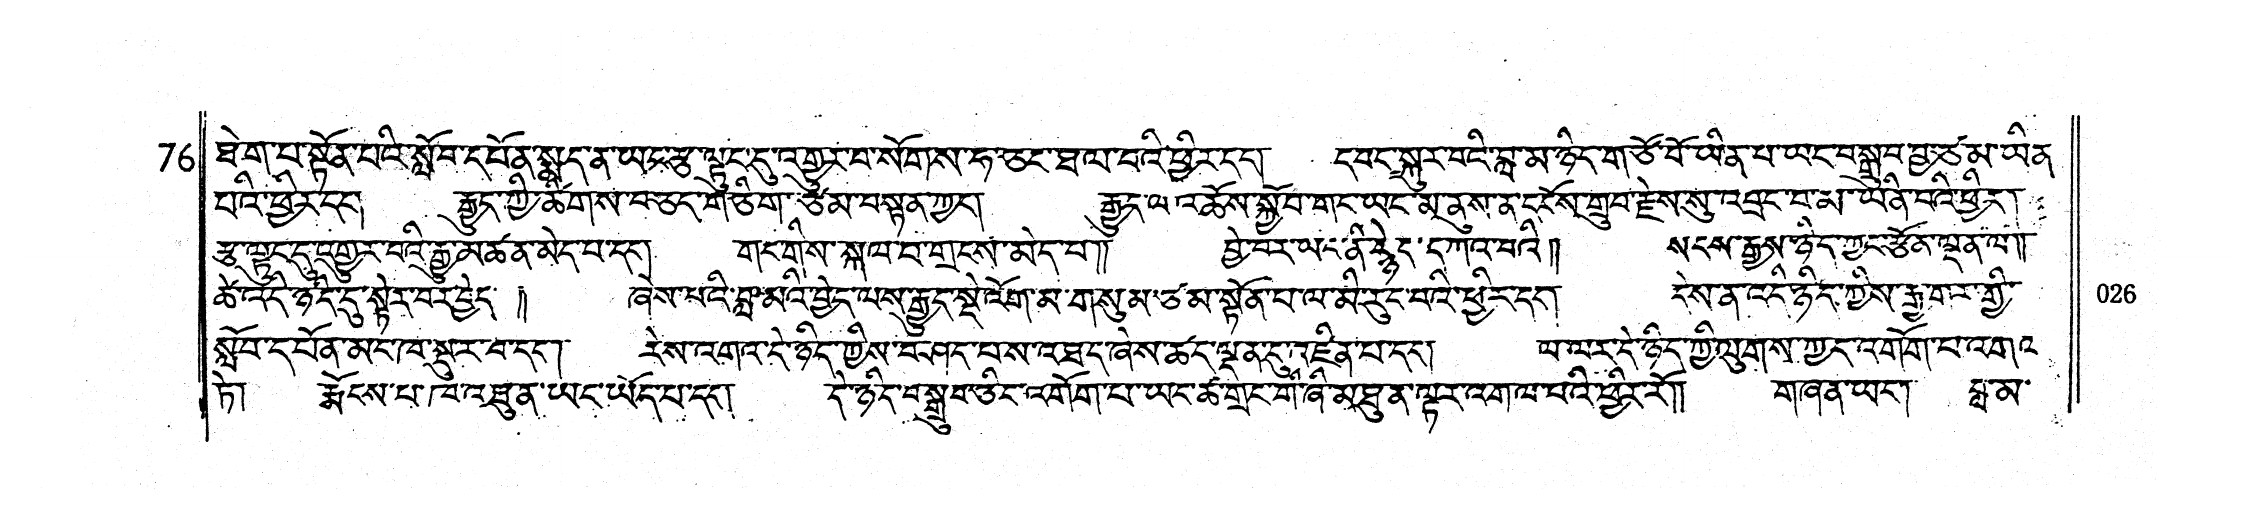 76 ཐེག་པ་སྟོན་པའི་སློབ་དཔོན་སྨད་ན་ཡང་རྩ་ལྟུང་དུ་འགྱུར་བ་སོགས་ཧ་ཅང་ཐལ་བའི་ཕྱིར་དང༌། དབང་སྐུར་བའི་བླ་མ་ཉིད་གཙོ་བོ་ཡིན་པ་ཡང་བསྒྲུབ་བྱ་ཙམ་ཡིན་
པའི་ཕྱིར་དང༌། རྒྱུད་ཀྱི་ཚིགས་བཅད་གཅིག་ཙམ་བསྟན་ཀྱང༌། རྒྱུད་ལ་འཆོས་སྐྱོབ་གང་ཡང་མ་ནུས་ན་དངོས་གྲུབ་རྗེས་སུ་འབྲང་བ་མ་ཡིན་པའི་ཕྱིར།
རྩ་ལྟུང་དུ་འགྱུར་བའི་རྒྱུ་མཚན་མེད་པ་དང༌། གང་གིས་སྐལ་པ་གྲངས་མེད་པ།། བྱེ་བར་ཡང་ནི་རྙེད་དཀའ་བའི།། སངས་རྒྱས་ཉིད་ཀྱང་རྩོན་ལྡན་ལ།།
ཚེ་འདི་ཉིད་དུ་སྟེར་བར་བྱེད།། ཞེས་པའི་བླ་མའི་བྱེད་ལས་རྒྱུད་སྡེ་འོག་མ་གསུམ་ཙམ་སྟོན་པ་ལ་མི་རུང་བའི་ཕྱིར་དང༌། དེས་ན་འདི་ཉིད་ཀྱིས་རྒྱ་གར་གྱི་
སློབ་དཔོན་མང་ཁ་སྡུར་བ་དང༌། རེས་འགའ་དེ་ཉིད་ཀྱིས་བཤད་པས་འཐད་ཞེས་ཚད་ལྡན་དུ་འཛིན་པ་དང༌། ལ་ལར་དེ་ཉིད་ཀྱི་ལུགས་ཀྱང་འགོག་པ་འགལ་
ཏེ། རྨོངས་པ་ཁ་འཐུན་ཡང་ཡོད་པ་དང༌། དེ་ཉིད་བསྒྲུབ་ཅིང་འགོག་པ་ཡང་ཚ་གྲང་གི་ཞི་མཐུན་ལྟར་འགལ་བའི་ཕྱིར་རོ།། གཞན་ཡང༌། བླ་མ་
026